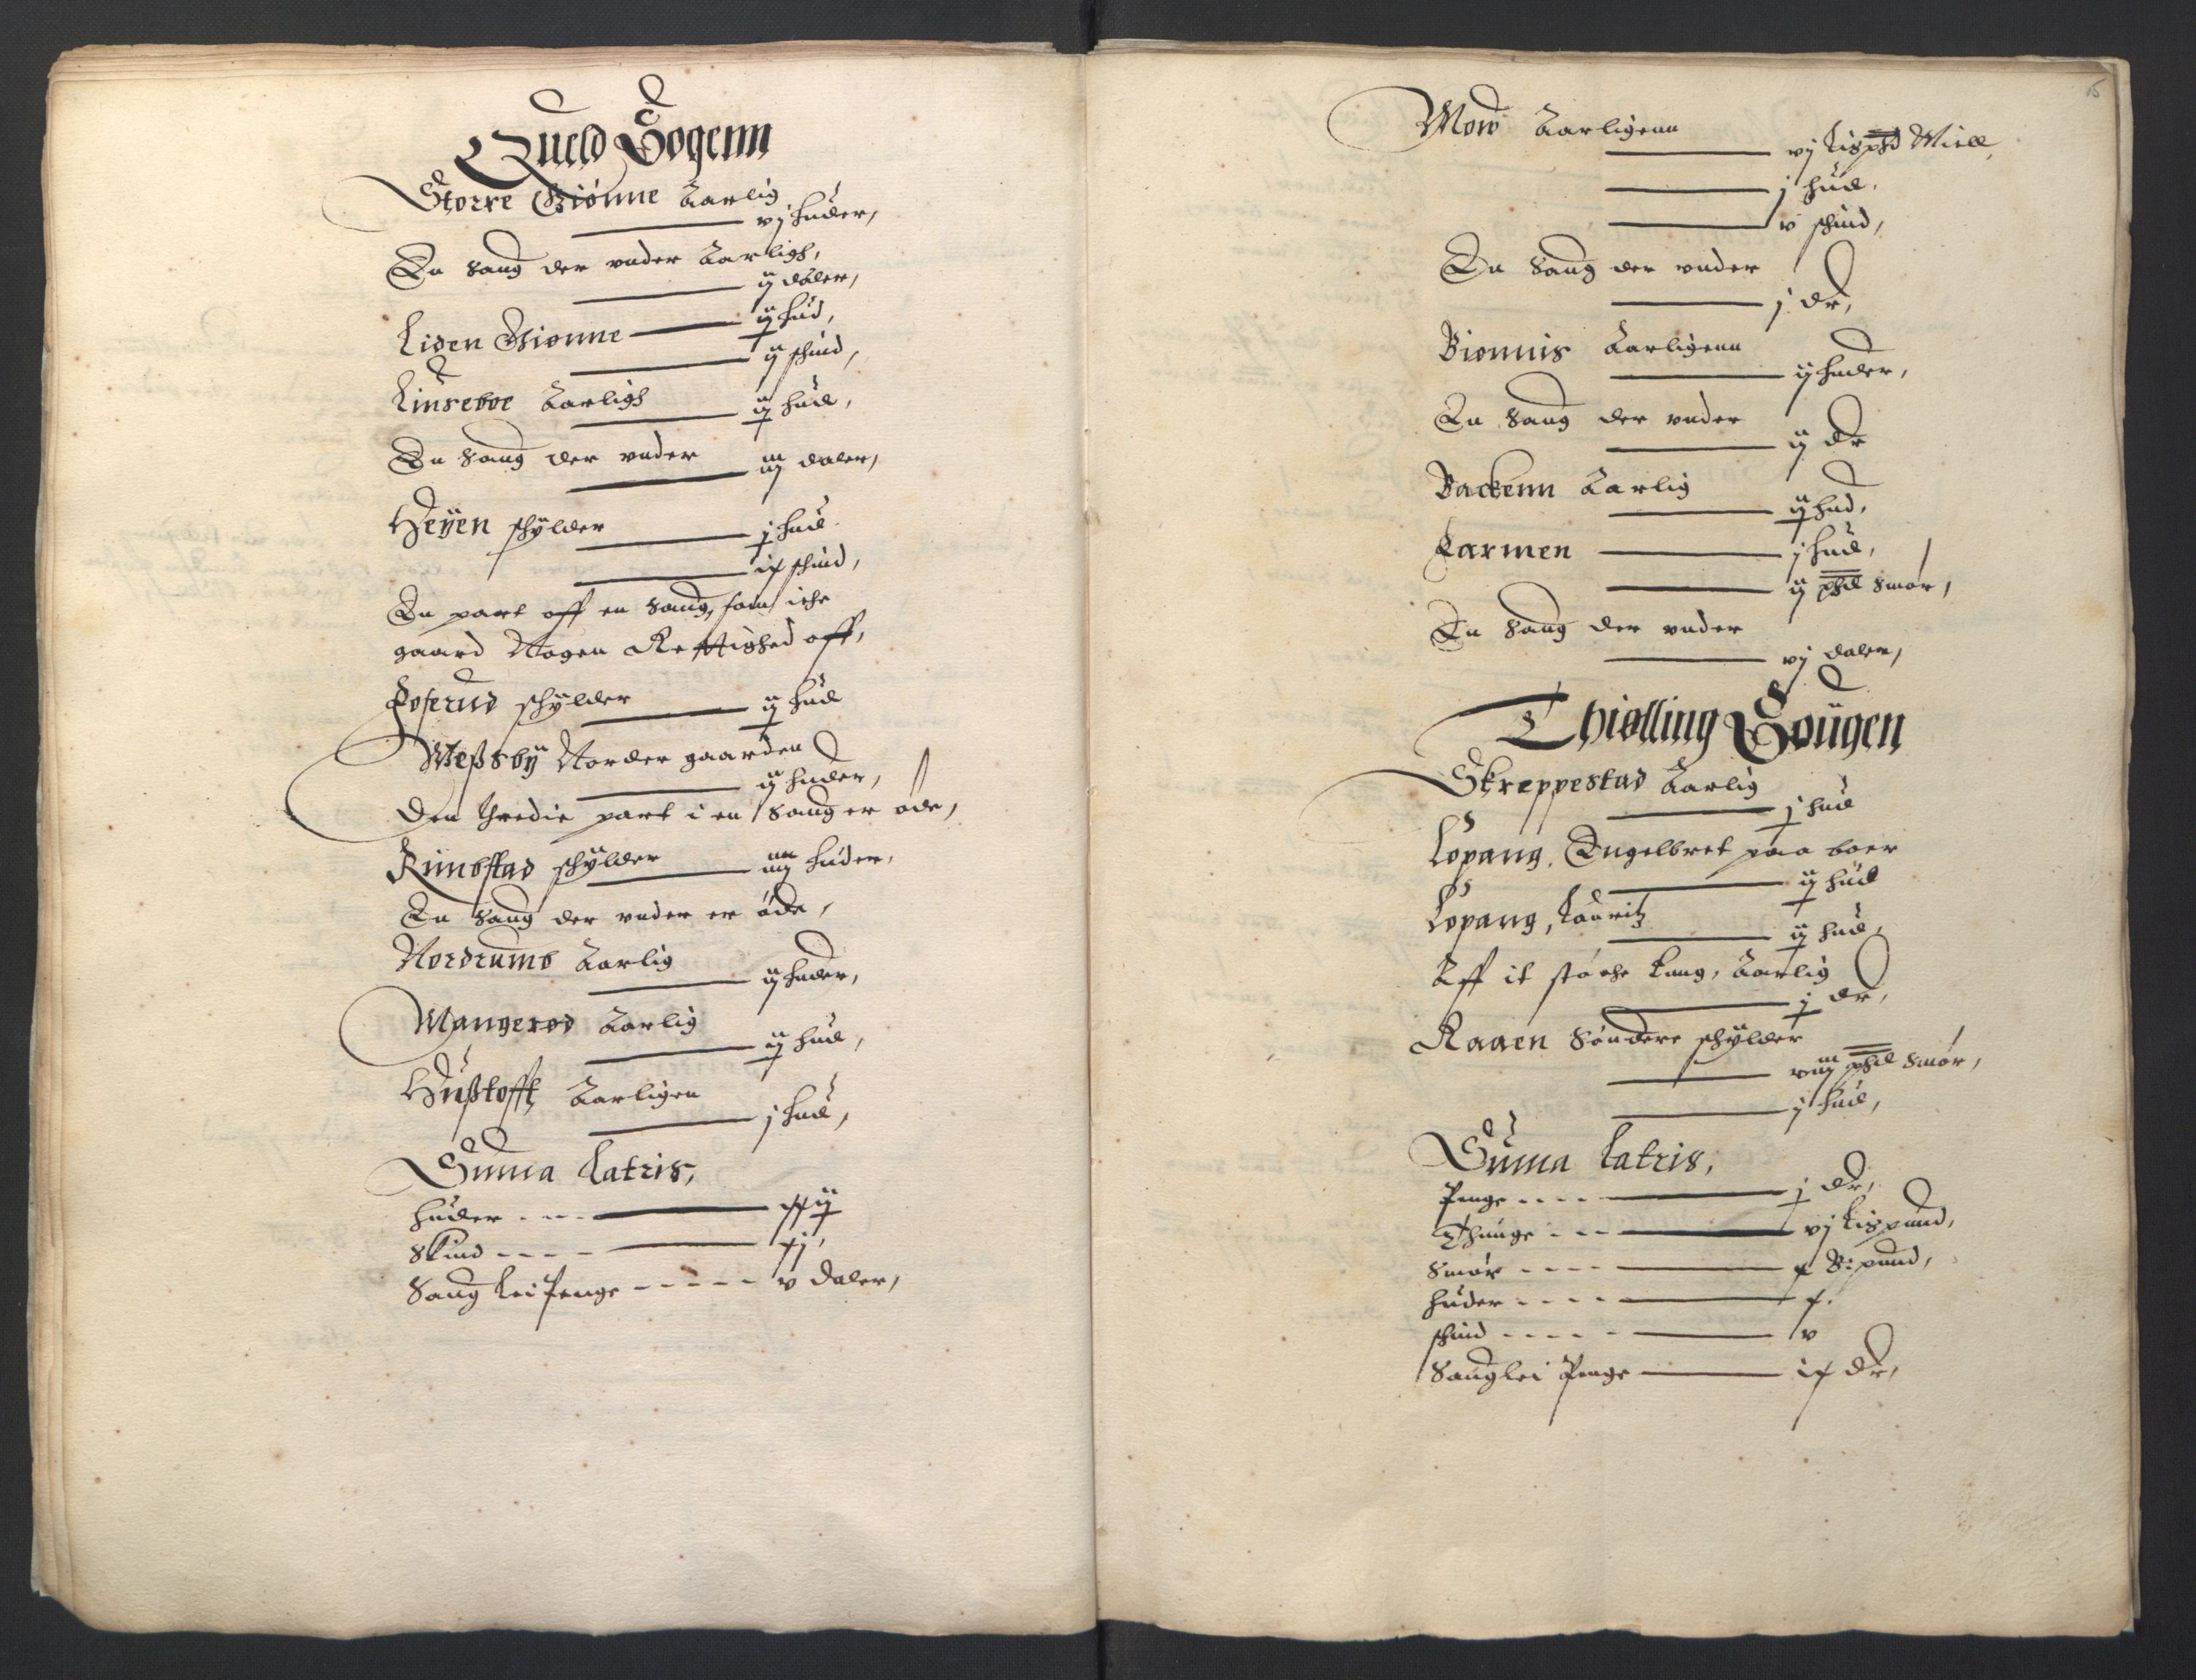 Queld Sogenn
Storre Giönne Aarlig
vj huder,
En Saug der vnder Aarligh,
ij daler,
Liden Gionne ij hud,
ij schind,
Linseboe Aarligh
ij hud,
En Saug der vnder
iij daler,
Heÿen schÿlder
j hud
ix schind,
En part off en Saug, som iche
gaard Nogen Rettighed off,
schÿlder
ij hud
Meßsbÿ Norder gaarden
ij huder,
Den thredie part i en Saug er øde,
Rimbstad schÿlder
iiij huder,
En Saug der vnder er öde,
Nordrumb Aarlig
ij huder,
Mangerød Aarlig
ij hud,
Hußtofft Aarligen
j hud,
Suma Latris,
huder - - - xxij
Skind - - - - xj,
Saug Lei Penge - - - - - v daler,
Mow Aarligenn
vj Lispd Miell
j hud,
v schind,
En Saug der vnder
j dr,
Bionnis Aarligenn
ij huder,
En Saug der vnder
ij dr
Backenn Aarlig
ij hud,
Farmen j hud,
ij Smør,
En Saug der vnder
vj daler,
Thiølling Soügen
Skreppestad Aarlig
j hud
Lopang, Engelbret paa boer
ij hud
Lopang, Lauritz
ij hud,
Aff it støche Eng, Aarlig
j dr,
Raaen Söndere schÿlder
viij Smør,
j hud,
Suma Latris,
Penge - - - - j dr,
Thünge - - - vj Lispund,
Smør - - - - x B: pund,
huder - - - - x.
schind - - - - - v
Sauglei Penge ix dr,